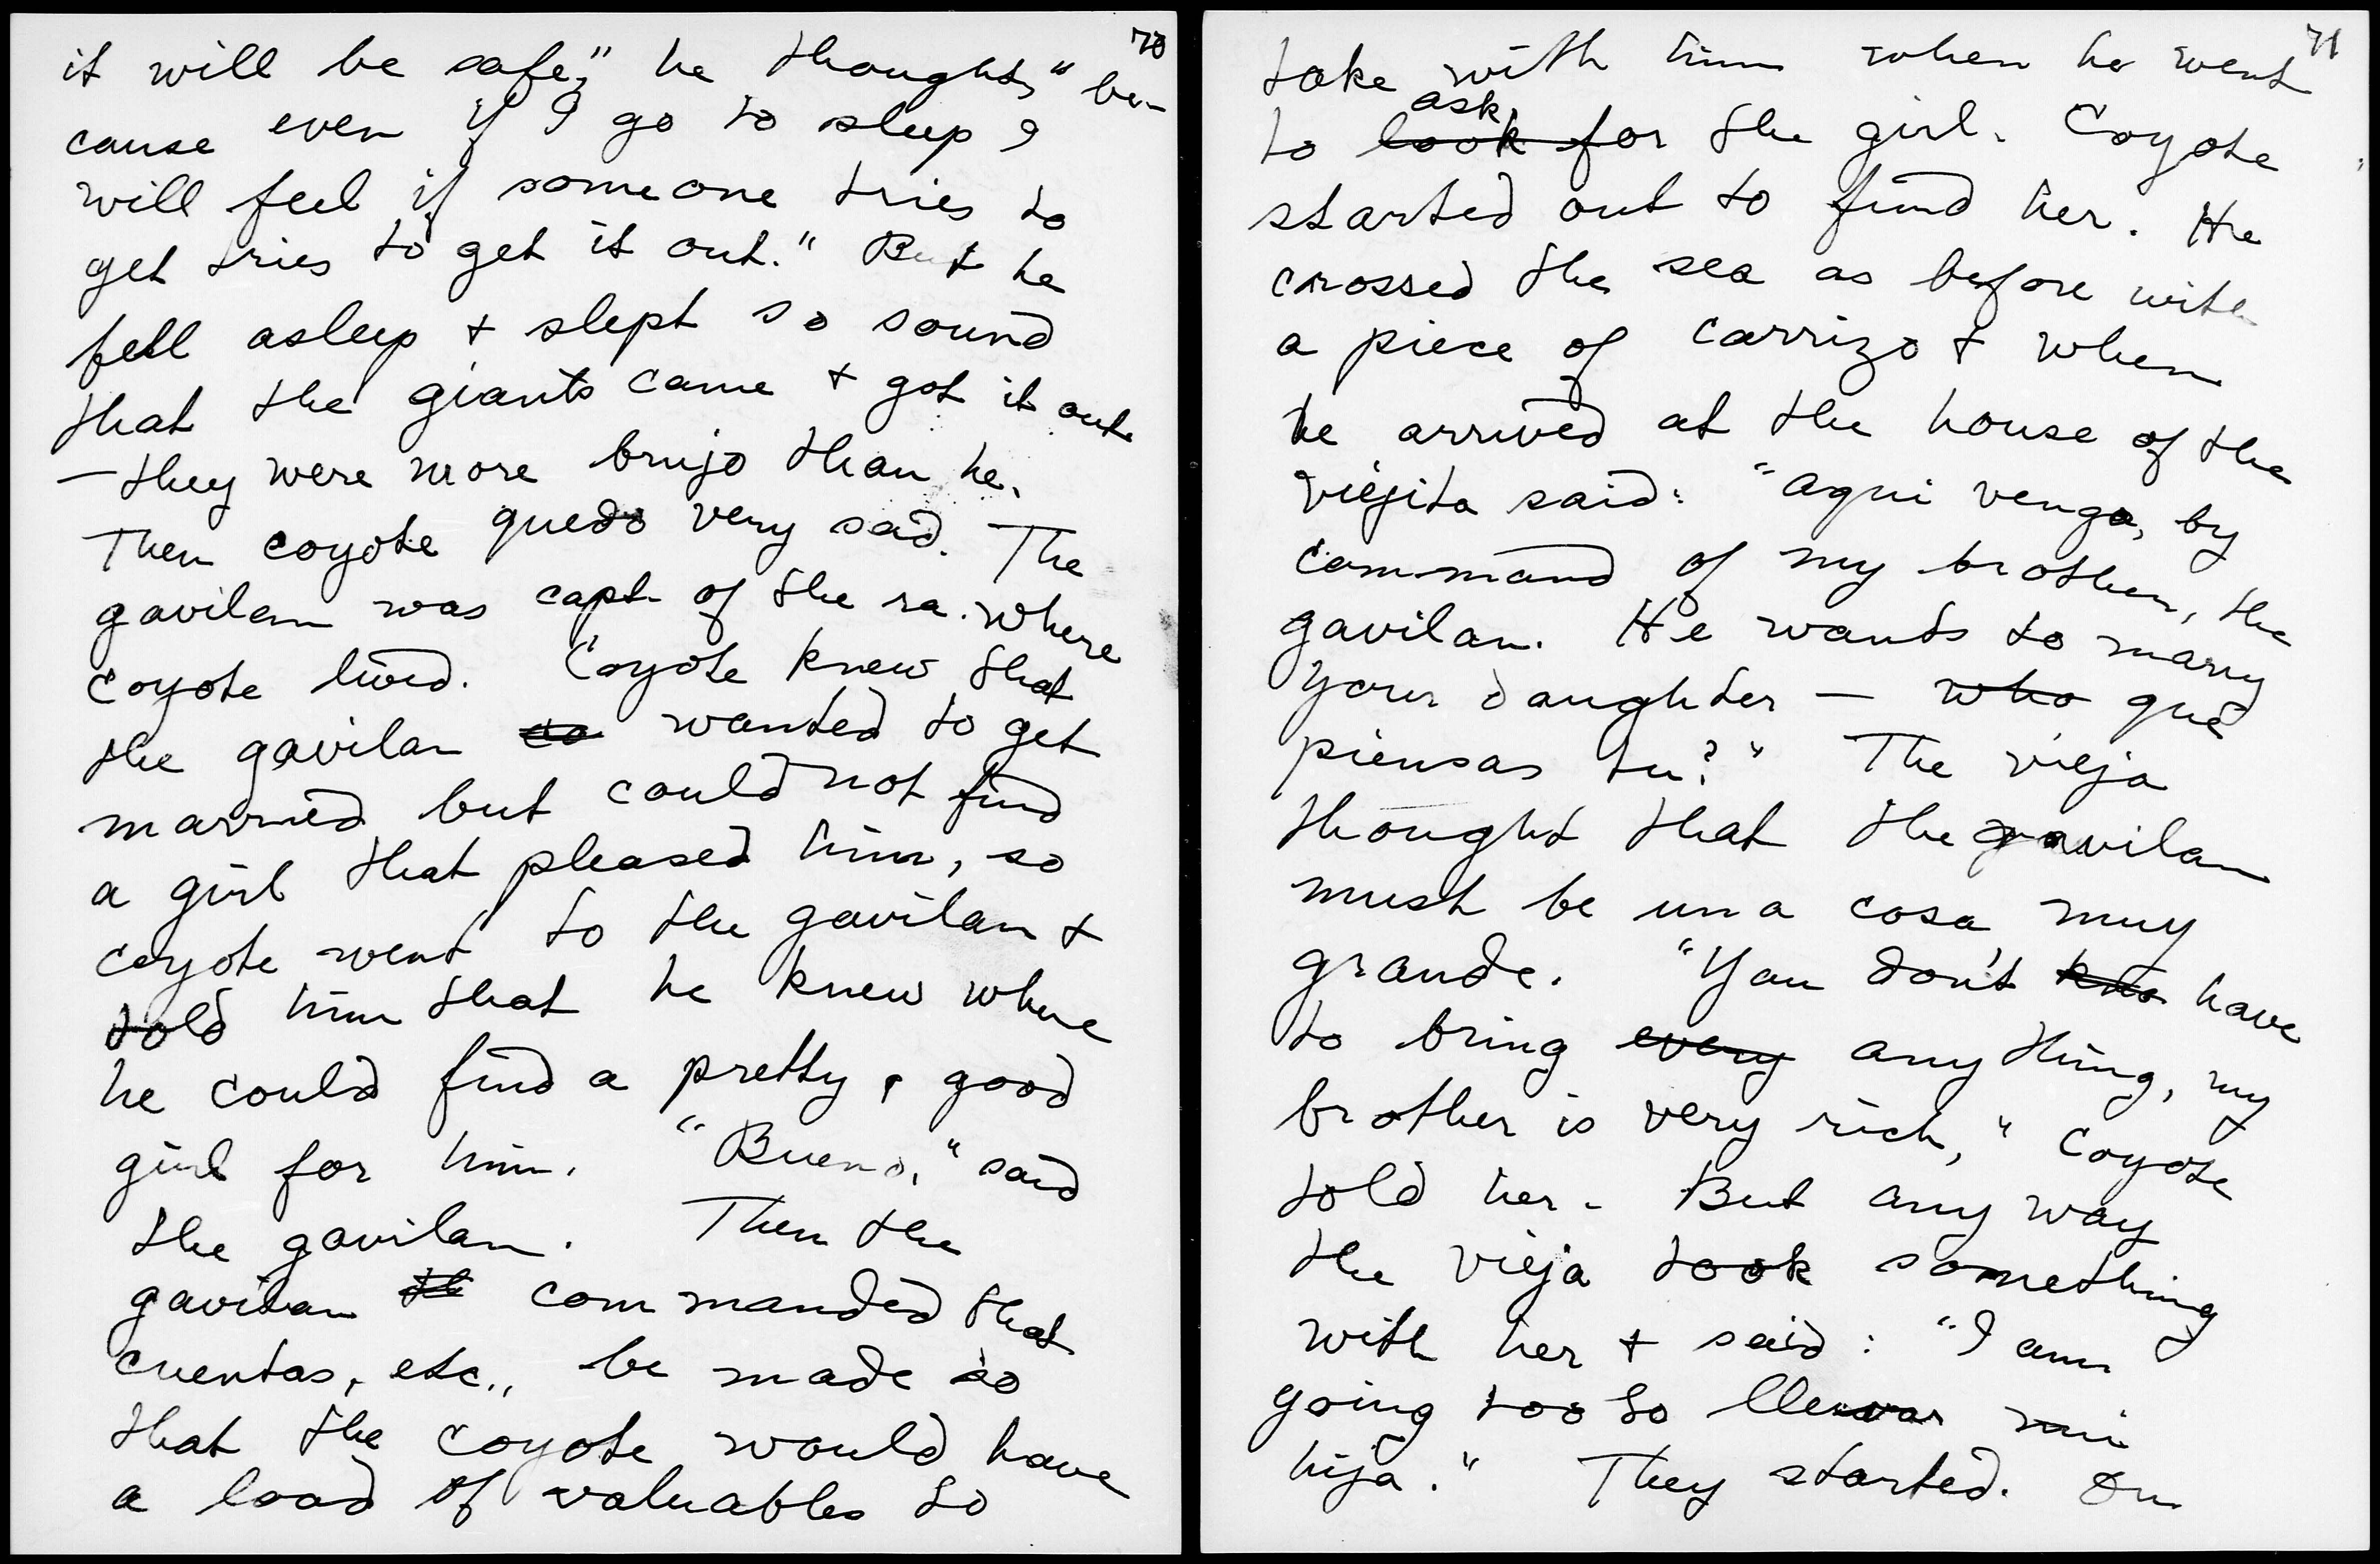 70
it will be safe," he thought, "be-
cause even if I go to sleep I
will feel if someone tries to
get tries to get it out." But he
fell asleep + slept so sound
that the giants came + got it out
— they were more brujo than he.
Then coyote quedo very sad. The
gavilan was capt. of the ra. where
coyote lived. Coyote knew that
the gavilan wanted to get
married but could not find
a girl that pleased him, so
coyote went to the gavilan +
told him that he knew where
he could find a pretty, good
girl for him. "Bueno," said
the gavilan. Then the
gavilan commanded that
cuentas, etc., be made so
that the coyote would have
a load of valuables to
71
take with him when he went
to look ask for the girl. Coyote
started out to find her. He
crossed the sea as before with
a piece of carrizo + when
he arrived at the house of the
viejita said: "Aqui vengo, by
command of my brother, the
gavilan. He wants to marry
your daughter — who que
piensas tu?" The vieja
thought that the gavilan
must be una cosa muy
grande. "You don't kno have
to bring every anything, my
brother is very rich," coyote
told her. But any way
the vieja took something
with her + said: "I am
going too to llevar mi
hija." They started. On